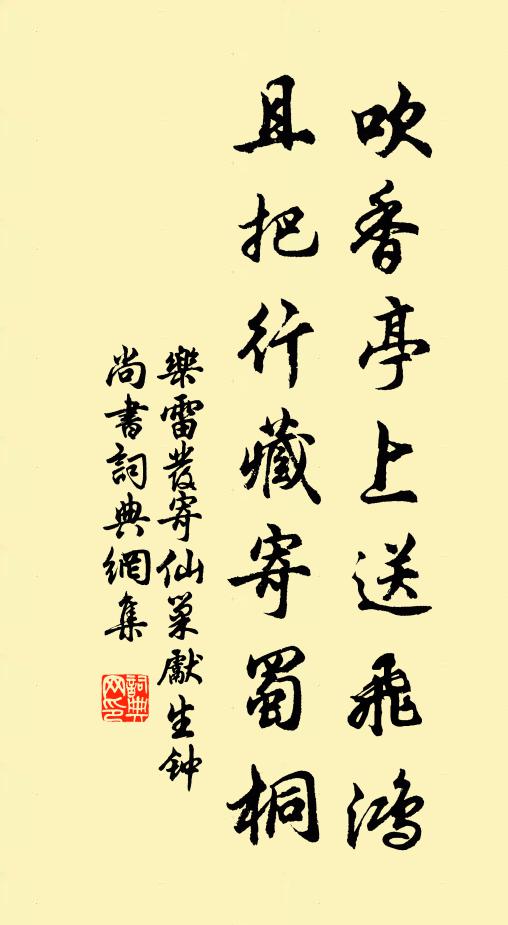 吹香亭上送飛鴻
且把行藏寄蜀桐
樂雷發寄仙巢獻生钟
尚書詞典網集
詞典网印